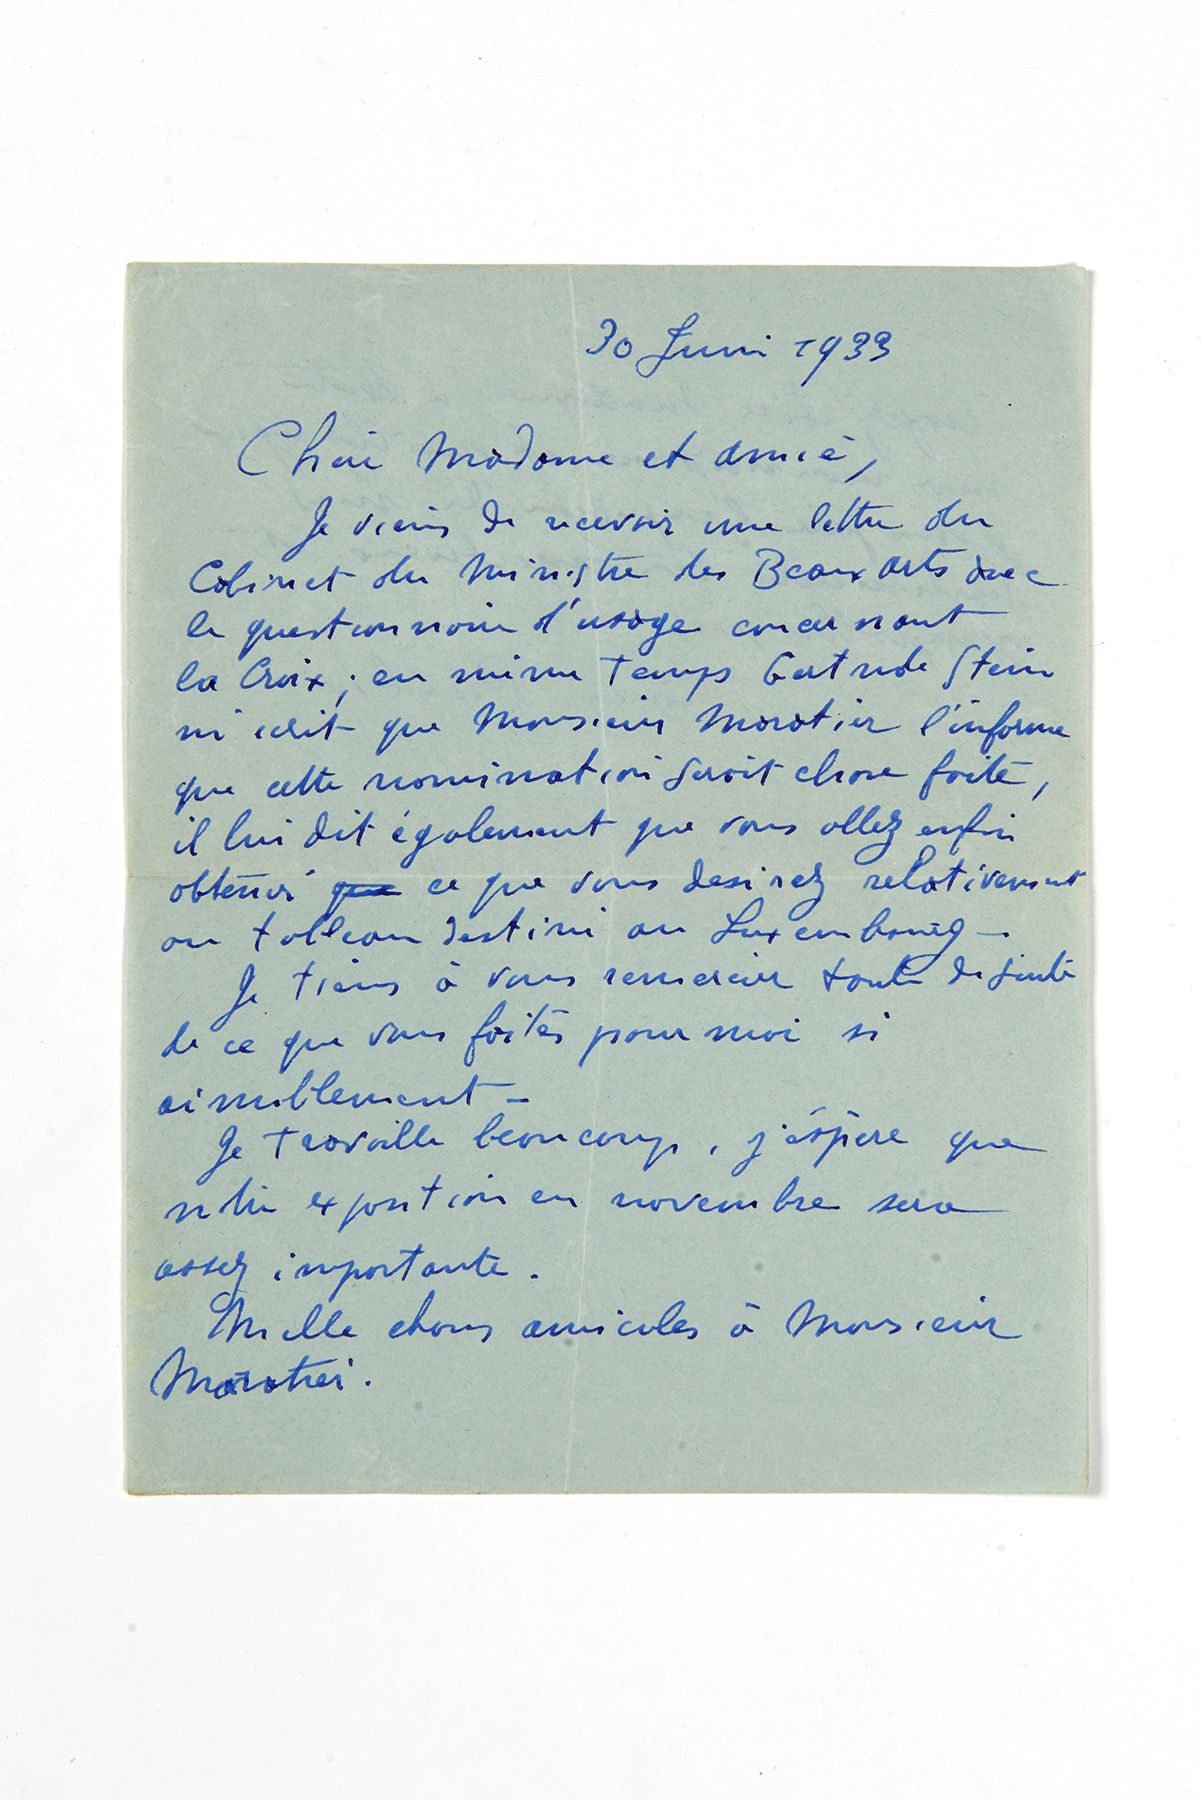 30 Juin 1933
Chère Madame et amie,
Je viens de recevoir une lettre du
Cabinet du Ministre des Beaux arts avec
le questionnaire d'usage concernant
la Croix ; en même temps Gertrude Stein
m'écrit que Monsieur Maratier l'informe
que cette nomination serait chose faite,
il lui dit également que vous allez enfin
obtenir que ce que vous desirez relativement
au tableau destiné au Luxembourg -
Je tiens à vous remercier toute de suite
de ce que vous faites pour moi si
aimablement -
Je travaille beaucoup, j'éspère que
notre exposition en novembre sera
assez importante.
Mille choses amicales à Monsieur
Maratier.